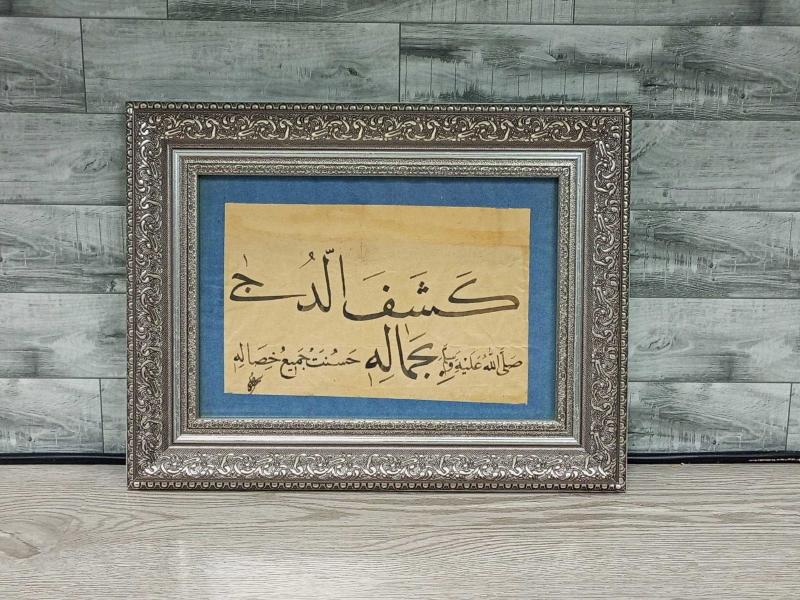 كَشَفَ الدُّجٰى
صَلَّى اللهُ عَلَيْهِ وَسَلَّم بِجَمَالِهِ حَسُنَتْ جَمِيعُ خِصَالِهِ